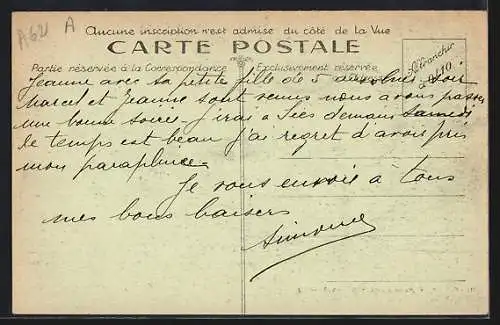 A621 A
Aucune inscription n'est admise du côté de la Vue
CARTE POSTALE
Partie réservée à la Correspondance Exclusivement réservée
Affranchir à 0f10
Jeanne avec sa petite fille de 5 ans hier soir
Marcel et Jeanne sont venus nous avons passé
une bonne soirée j'irai a Sées demain samedi
le temps est beau j'ai regret d'avoir pris
mon parapluie
Je vous envoie à tous
mes bons baisers
Simone